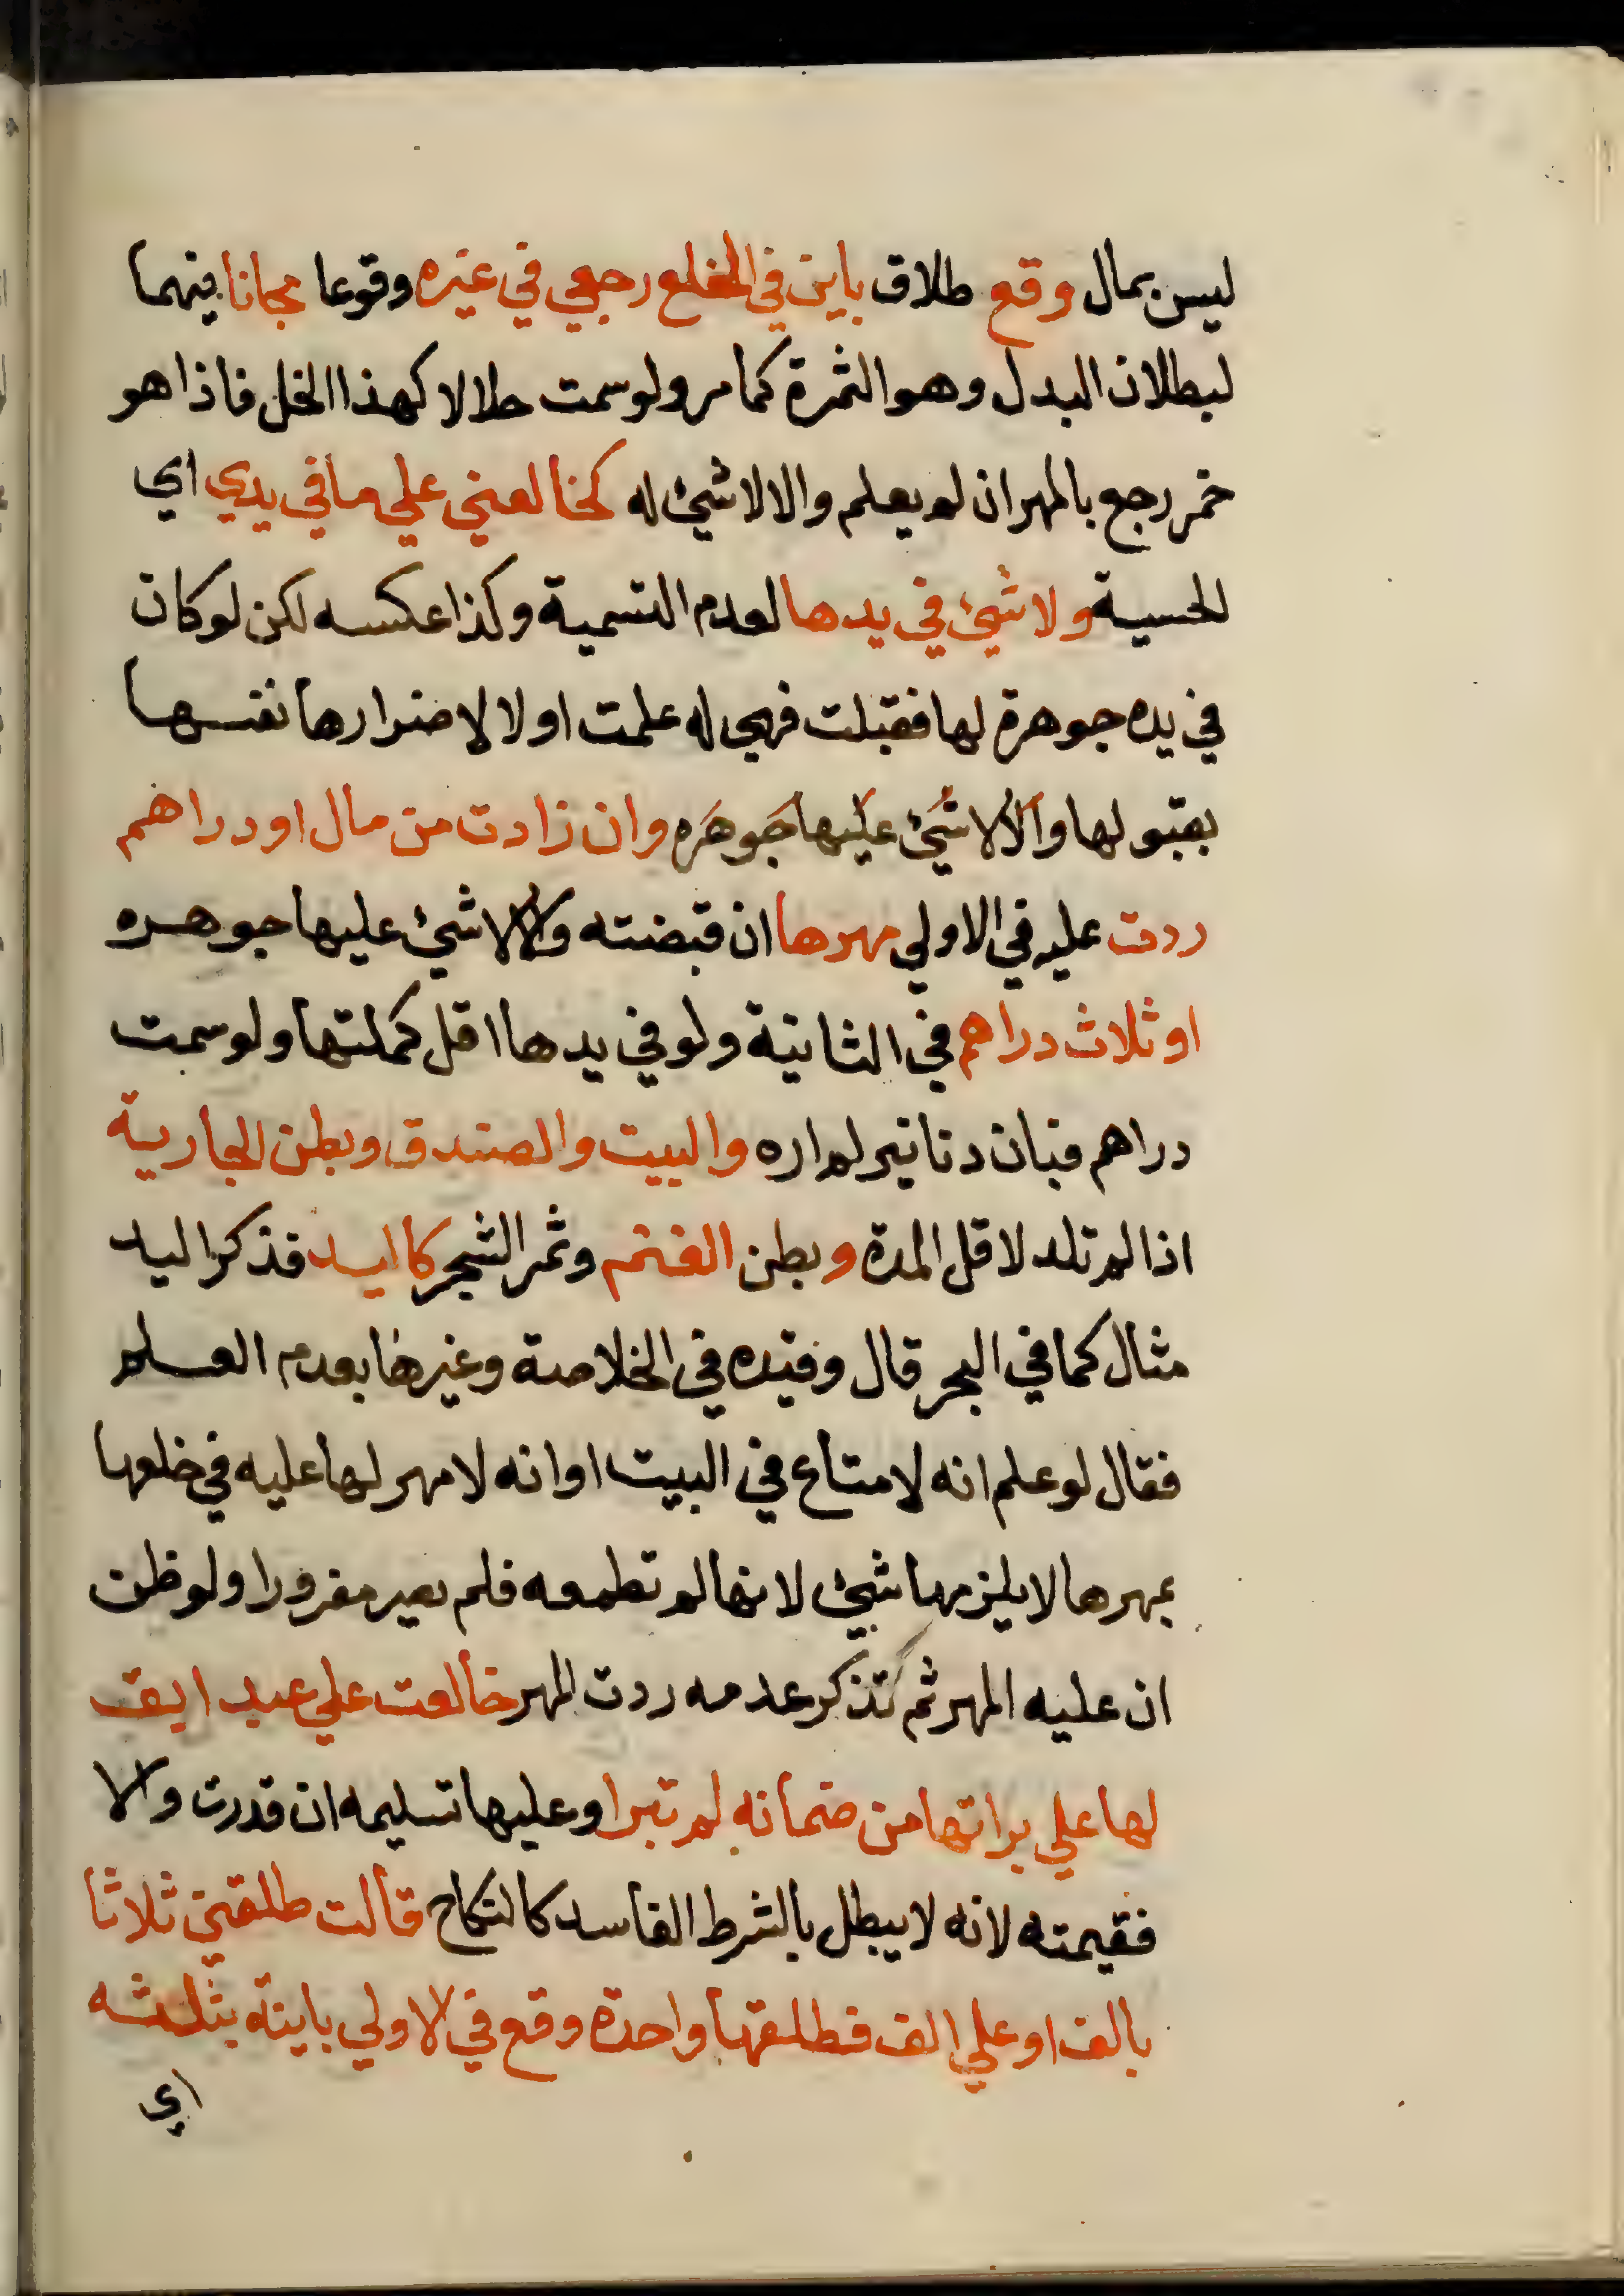 ليس بمال وقع طلاق باين في الخلع رجعي في غيره وقوعا مجانا فيهما
لبطلان البدل وهو الثمرة كما مر ولو سمت حلالا كهذا الخل فاذا هو
خمر رجع بالمهر ان لم يعلم والا لا شيئ له كخالعني علي ما في يدي اي
الحسية ولا شيئ في يدها لعدم التسمية وكذا عكسه لكن لو كان
في يده جوهرة لها فقبلت فهي له علمت او لا لاضرارها نفسها
بقبولها والا لا شيئ عليها جوهره وان زادت من مال او دراهم
ردت عليه في الاولي مهرها ان قبضته والا لا شيئ عليها جوهره
او ثلاث دراهم في الثانية ولو في يدها اقل كملتها ولو سمت
دراهم فبان دنانير لم اره والبيت والصندق وبطن الجارية
اذا لم تلد لاقل المدة وبطن الغنم وثمر الشجر كاليد فذكر اليد
مثال كما في البحر قال وقيده في الخلاصة وغيرها بعدم العلم
فقال لو علم انه لا متاع في البيت او انه لا مهر لها عليه في خلعها
بمهرها لا يلزمها شيئ لانها لم تطمعه فلم يصر مغرورا ولو ظن
ان عليه المهر ثم تذكر عدمه ردت المهر خالعت علي عبد ابق
لها علي براتها من ضمانه لم تبرا وعليها تسليمه ان قدرت والا
فقيمته لانه لا يبطل بالشرط الفاسد كالنكاح قالت طلقني ثلاثا
بالف او علي الف فطلقها واحدة وقع في الاولي باينة بثلثه
اي